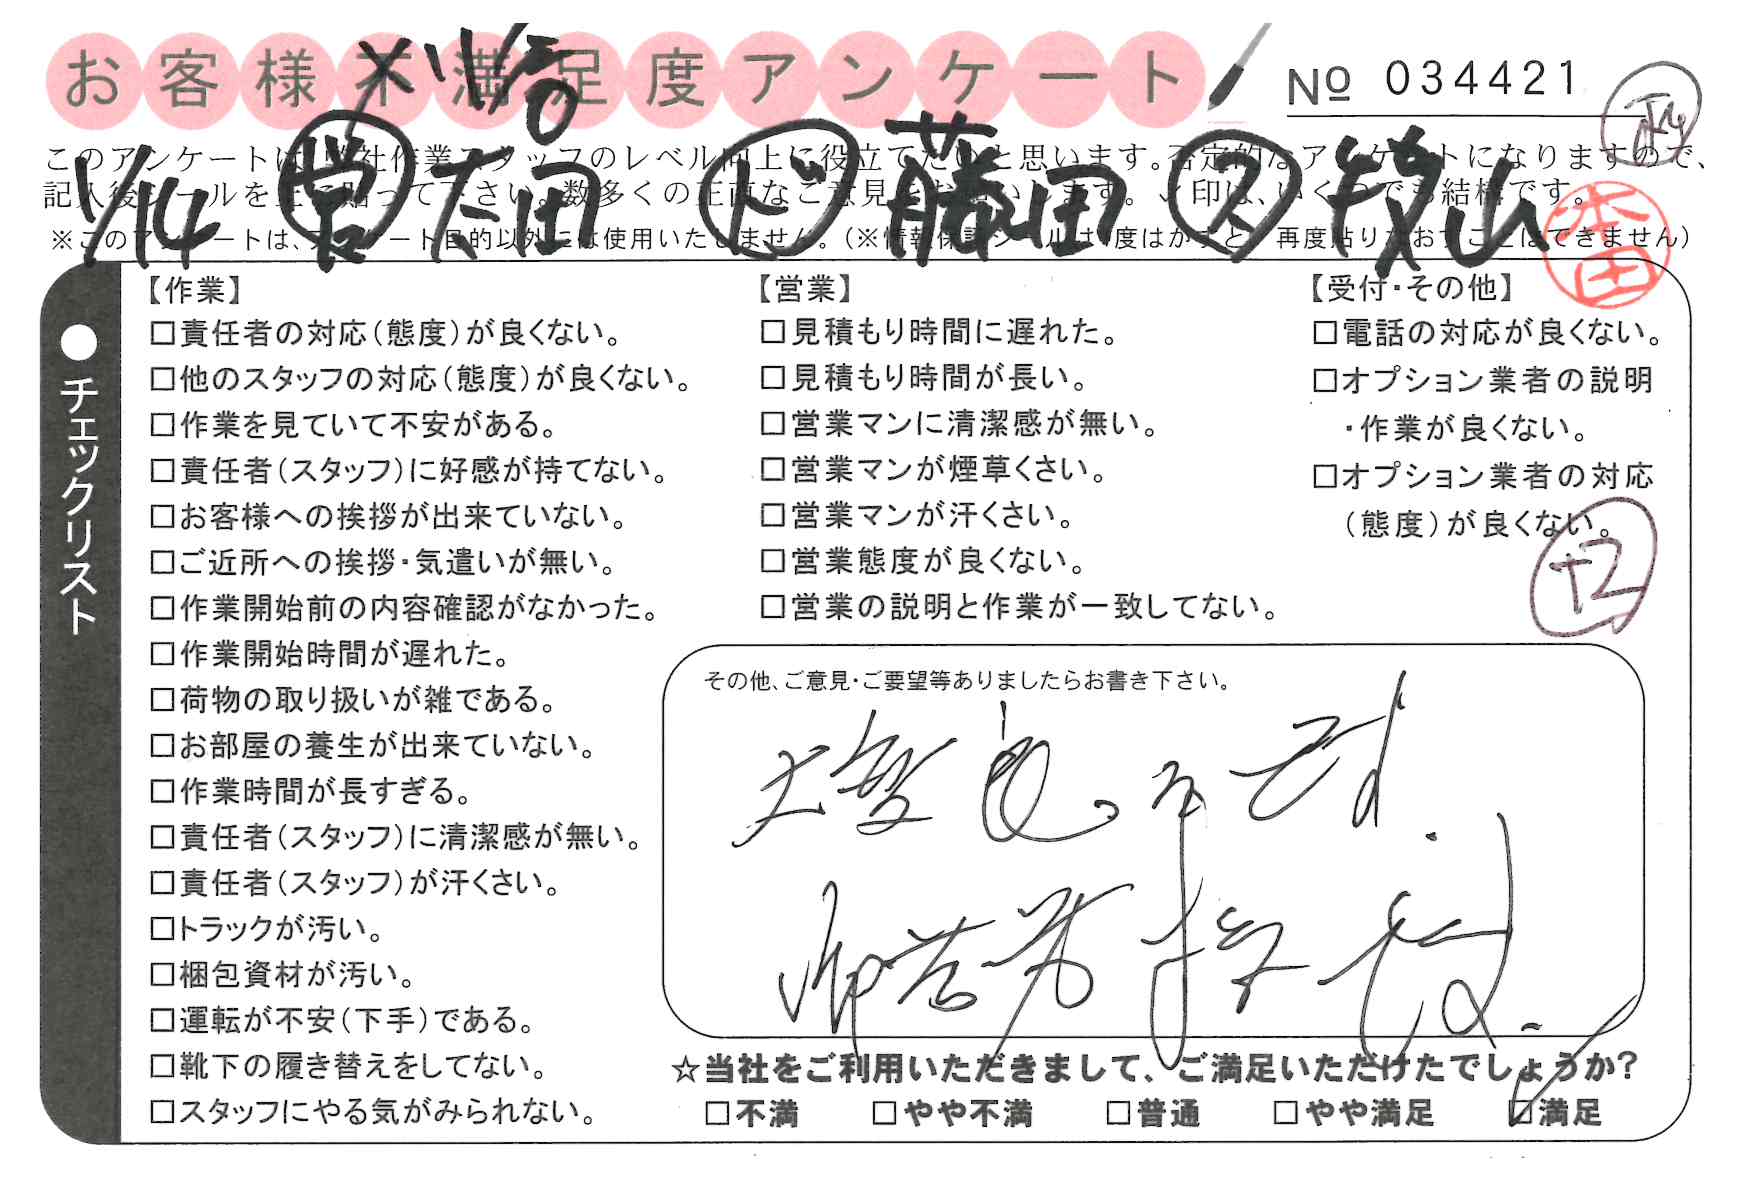 お客様不満足度アンケート
№ 034421
このアンケートは、弊社作業スタッフのレベル向上に役立てたいと思います。否定的なアンケートになりますので、
記入後シールを上に貼って下さい。数多くの正直なご意見をお願いします。✓印は、いくつでも結構です。
※このアンケートは、アンケート目的以外には使用いたしません。（※情報保護シールは1度はがすと、再度貼りなおすことはできません）
1/14 営 太田 ド 藤田 ス 横山
本田
●チェックリスト
【作業】
□責任者の対応（態度）が良くない。
□他のスタッフの対応（態度）が良くない。
□作業を見ていて不安がある。
□責任者（スタッフ）に好感が持てない。
□お客様への挨拶が出来ていない。
□ご近所への挨拶・気遣いが無い。
□作業開始前の内容確認がなかった。
□作業開始時間が遅れた。
□荷物の取り扱いが雑である。
□お部屋の養生が出来ていない。
□作業時間が長すぎる。
□責任者（スタッフ）に清潔感が無い。
□責任者（スタッフ）が汗くさい。
□トラックが汚い。
□梱包資材が汚い。
□運転が不安（下手）である。
□靴下の履き替えをしてない。
□スタッフにやる気がみられない。
【営業】
□見積もり時間に遅れた。
□見積もり時間が長い。
□営業マンに清潔感が無い。
□営業マンが煙草くさい。
□営業マンが汗くさい。
□営業態度が良くない。
□営業の説明と作業が一致してない。
【受付・その他】
□電話の対応が良くない。
□オプション業者の説明
・作業が良くない。
□オプション業者の対応
（態度）が良くない。
T2
その他、ご意見・ご要望等ありましたらお書き下さい。
☆当社をご利用いただきまして、ご満足いただけたでしょうか？
□不満 □やや不満 □普通 □やや満足 ☑満足